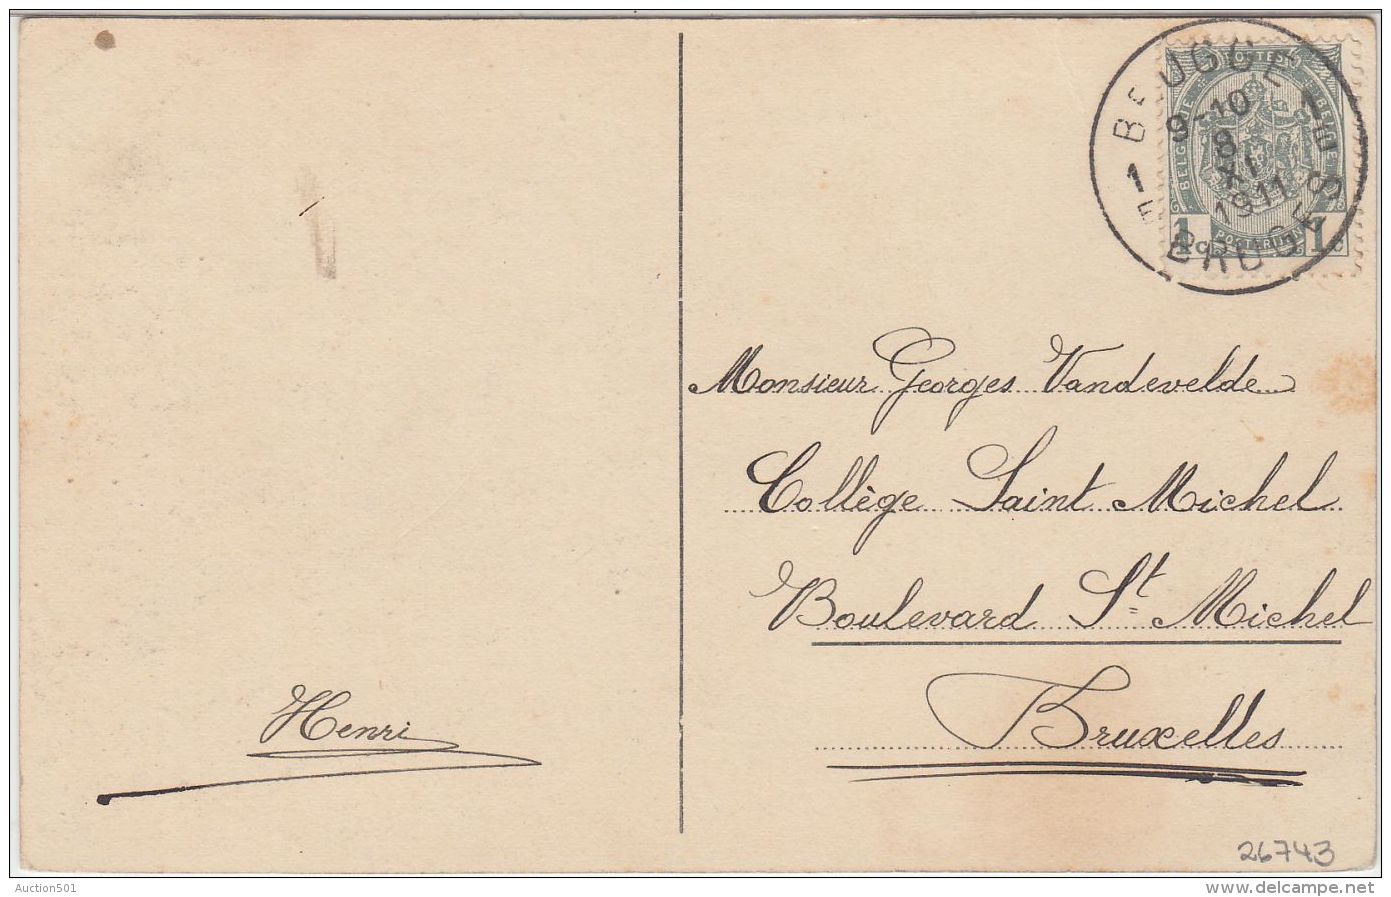 BRUGGE 1
9-10
8
XI
1911
1E BRUGES 1E
POSTES
BELGIQUE
BELGIE
POSTERIJEN
1c 1c
Monsieur Georges Vandevelde
Collège Saint Michel
Boulevard St Michel
Bruxelles
Henri
26743
Auction501
www.delcampe.net